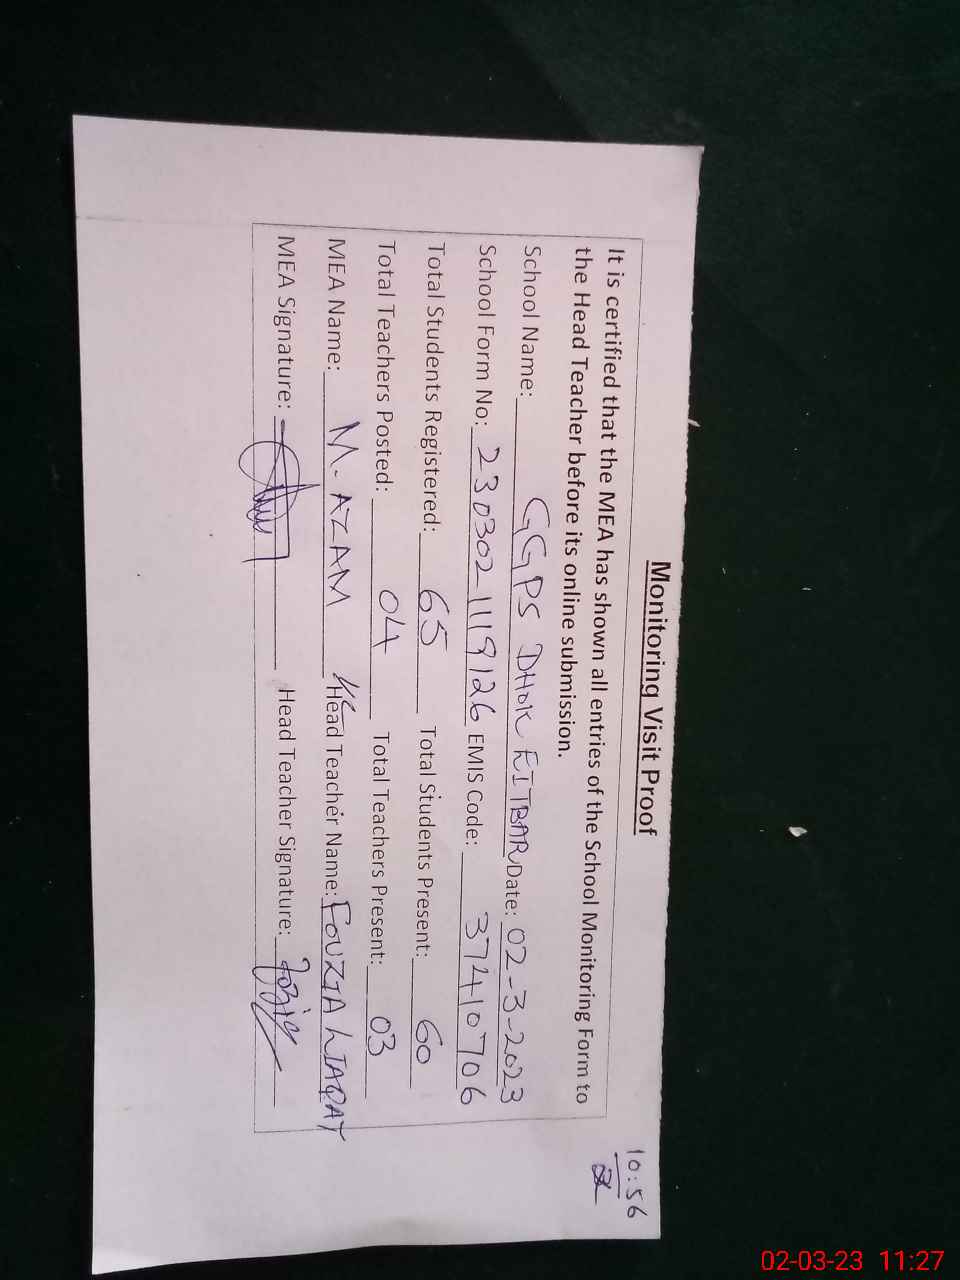 Monitoring Visit Proof
10:56
It is certified that the MEA has shown all entries of the School Monitoring Form to
the Head Teacher before its online submission.
School Name: GGPS DHOK EITBAR Date: 02-3-2023
School Form No: 2303021119126 EMIS Code: 37410706
Total Students Registered: 65 Total Students Present: 60
Total Teachers Posted: 04 Total Teachers Present: 03
MEA Name: M. AZAM Head Teacher Name: FOUZIA LIAQAT
MEA Signature: Head Teacher Signature: Fozia
02-03-23 11:27